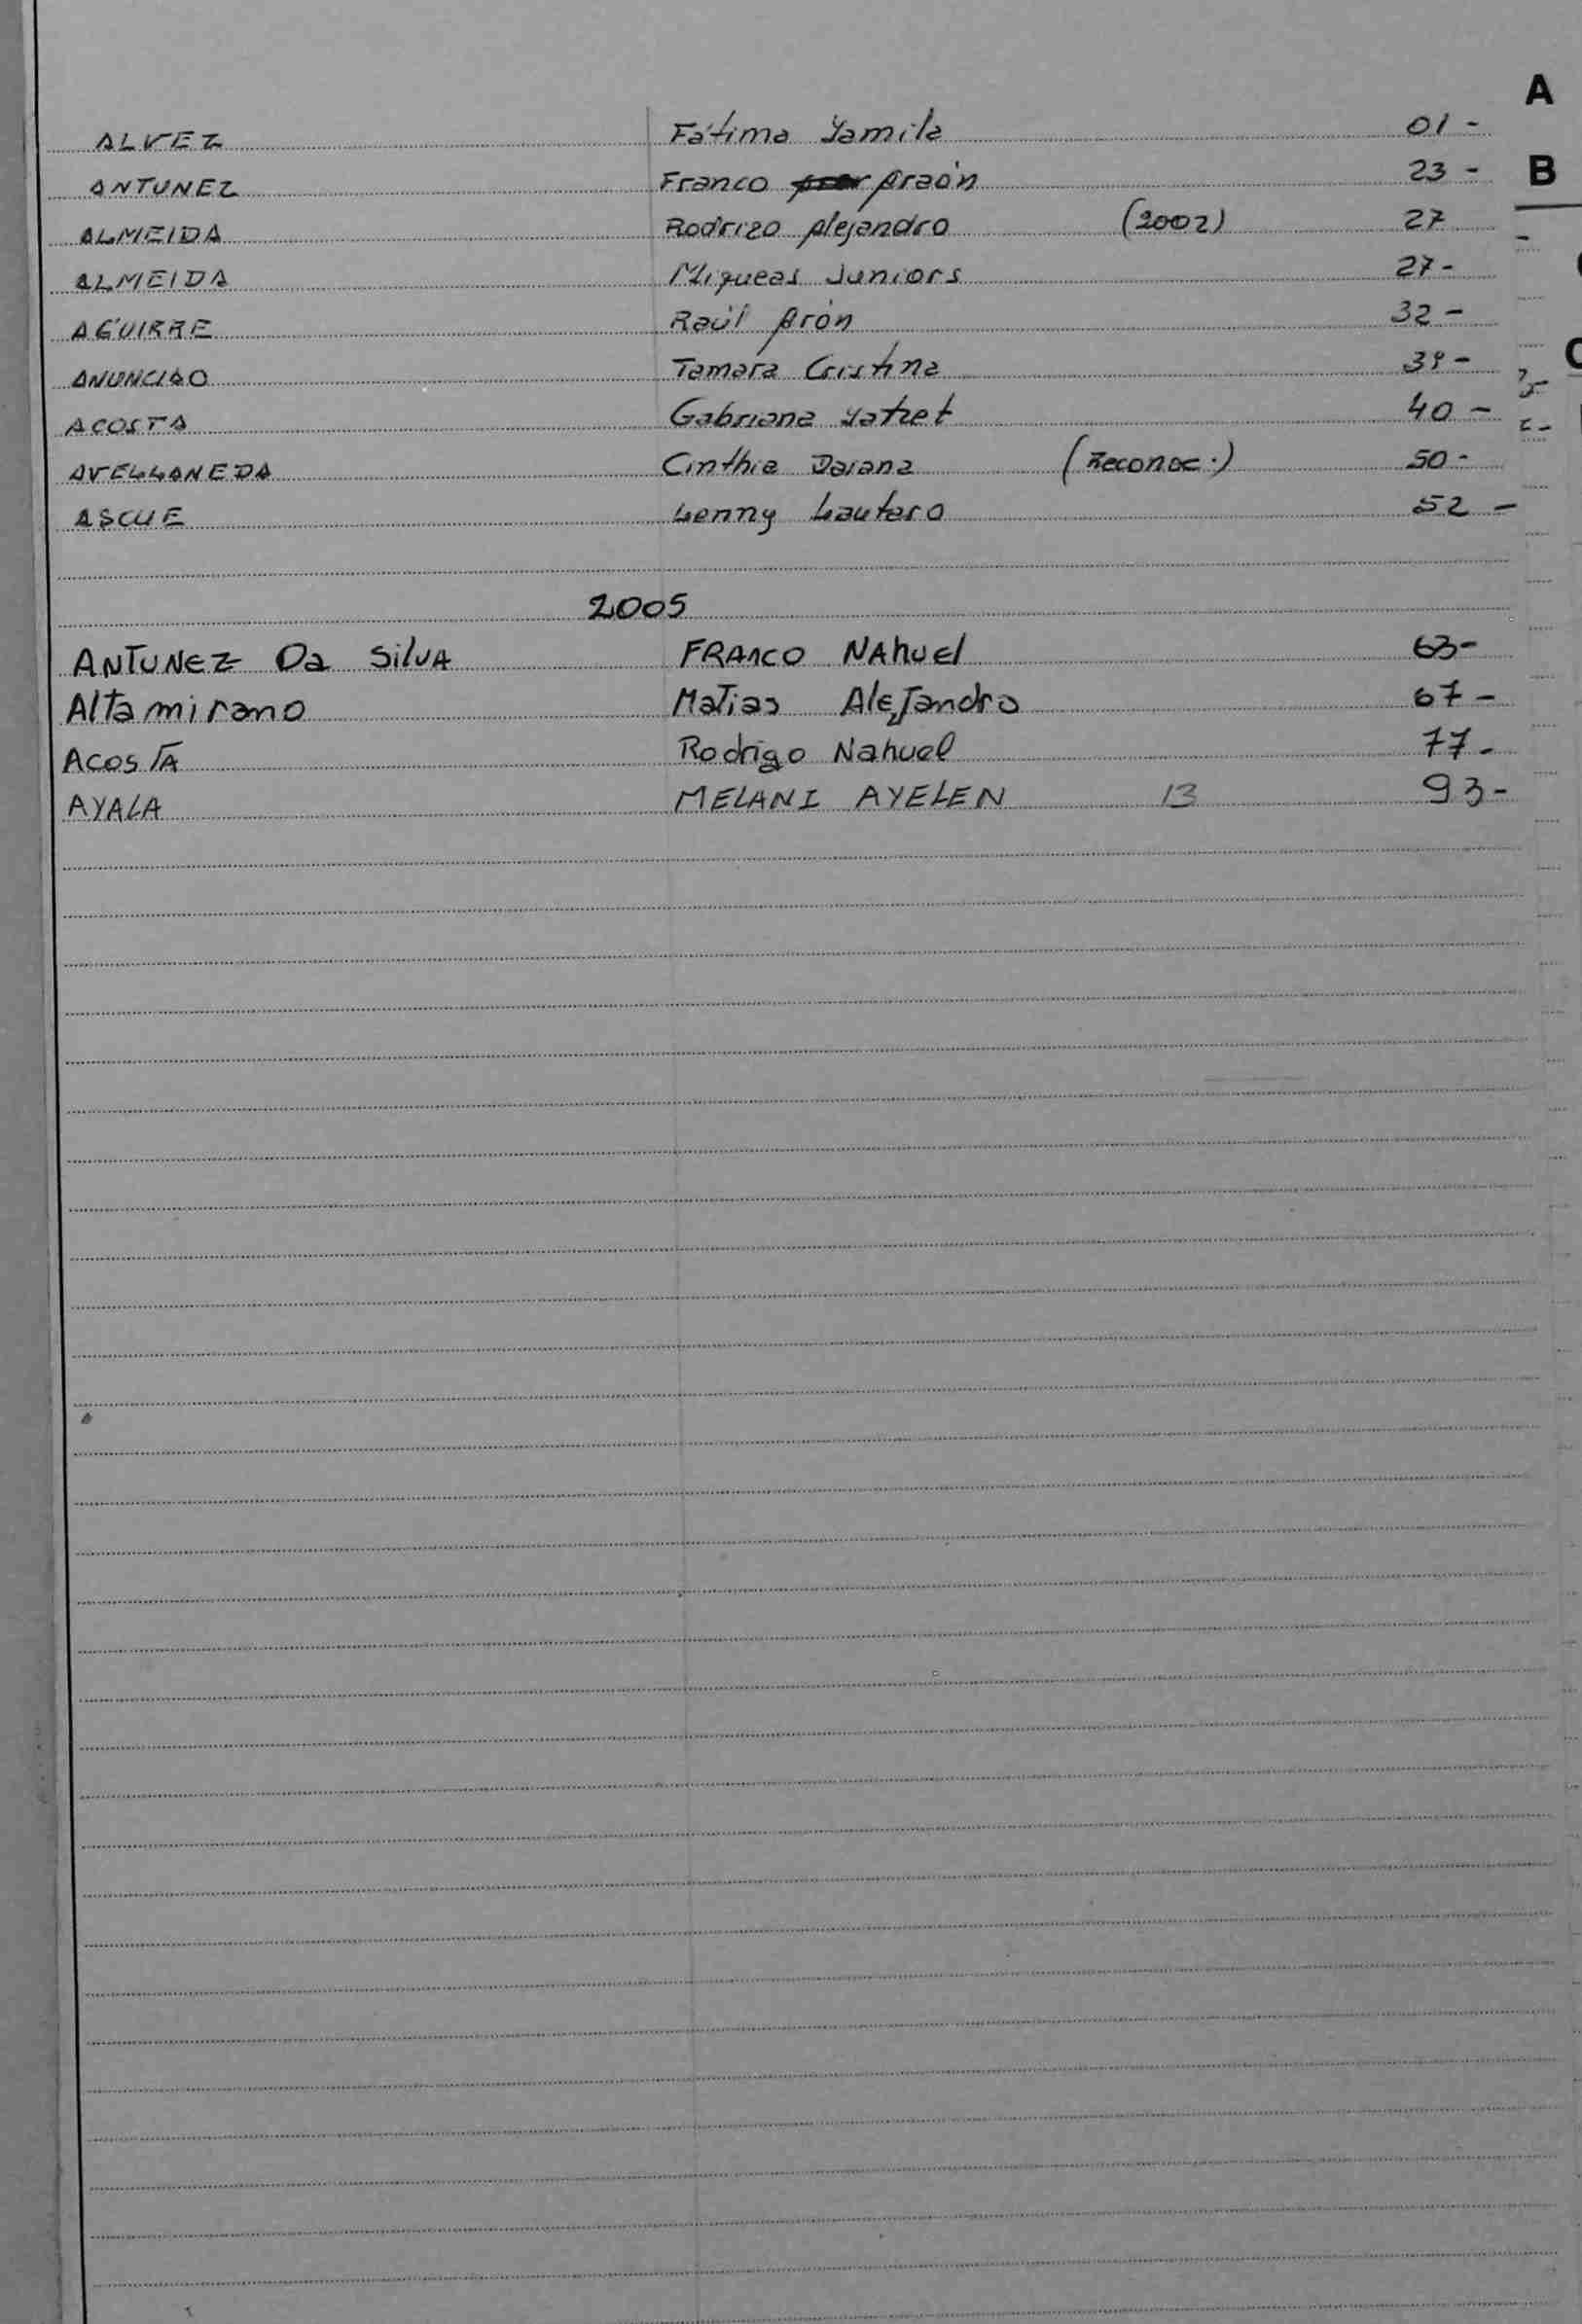 A
ALVEZ Fátima Yamila 01 -
ANTUNEZ Franco Araón 23 -
B
ALMEIDA Rodrigo Alejandro (2002) 27
ALMEIDA Miqueas Juniors 27 -
AGUIRRE Raúl Arón 32 -
ANUNCIAO Tamara Cristina 39 -
ACOSTA Gabriana 40 -
AVELLANEDA Cinthia Daiana (Reconoc.) 50 -
ASCUE Lenny Lautaro 52 -
2005
ANTUNEZ Da SilVA FRANCO NAhuel 63 -
Altamirano Matias AleJandro 67 -
ACOSTA Rodrigo Nahuel 77 -
AYALA MELANI AYELEN 13 93 -